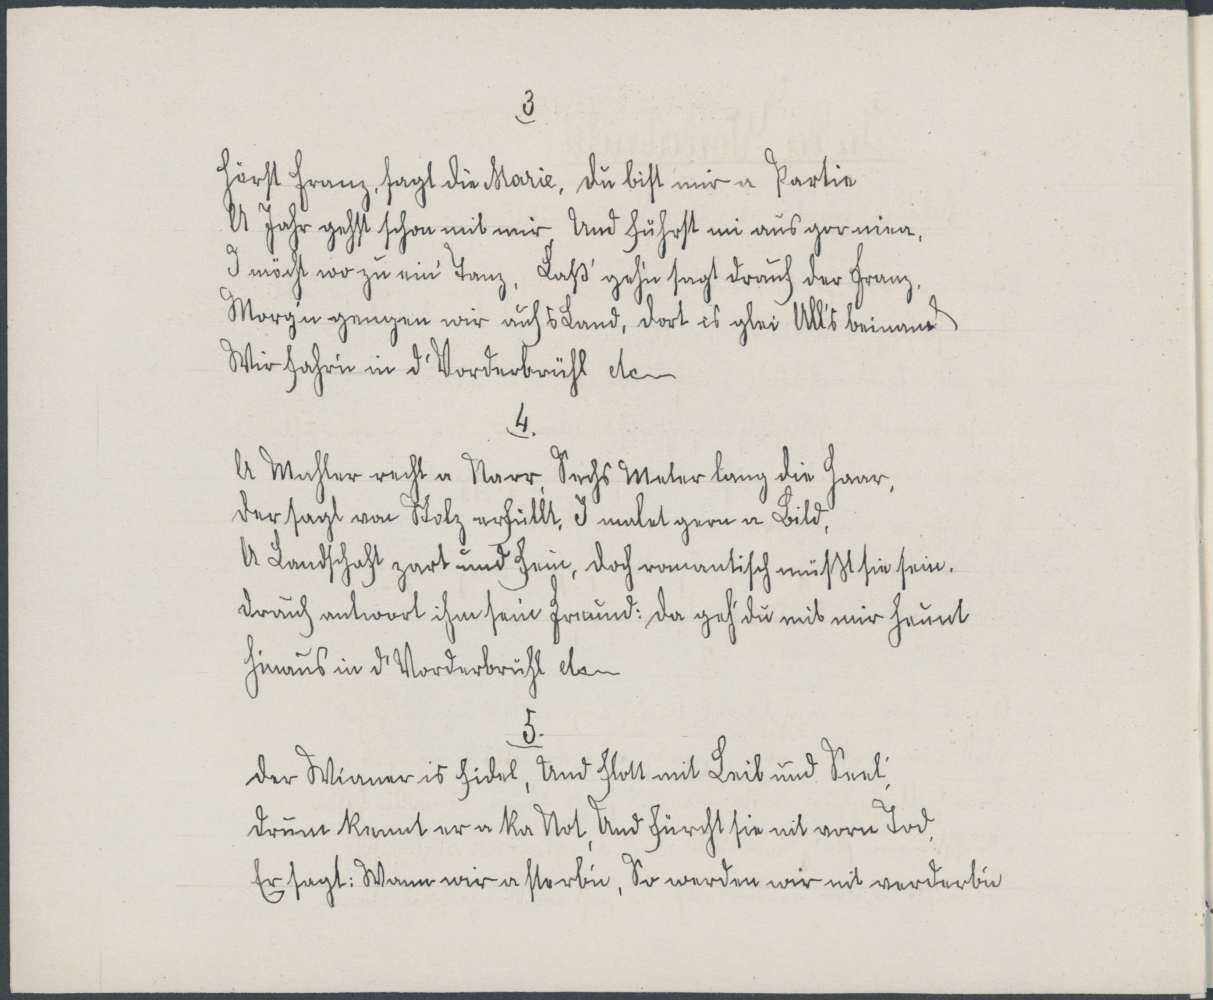 3
Hörst Franz, sagt die Marie, du bist mir a Partie
A Jahr gehst schon mit mir, Und führst mi aus gor niea,
I möcht wo zu ein' Tanz, Laß' geh'n sagt drauf der Franz,
Morg'n gengen wir auf's Land, dort is glei All's beinand
Wir fahr'n in d' Vorderbrühl etc
4.
A Mahler recht a Narr, Sechs Meter lang die Haar,
der sagt von Stolz erfüllt, I malet gern a Bild,
A Landschaft zart und fein, doch romantisch müßt sie sein.
drauf antwort ihm sein Freund: da geh' du mit mir heunt
hinaus in d' Vorderbrühl etc
5.
der Wiener is fidel, Und flott mit Leib und Seel',
drum kennt er a ka Not, Und fürcht sie nit vorn Tod,
Er sagt: Wann wir a sterb'n, So werden wir nit verderb'n